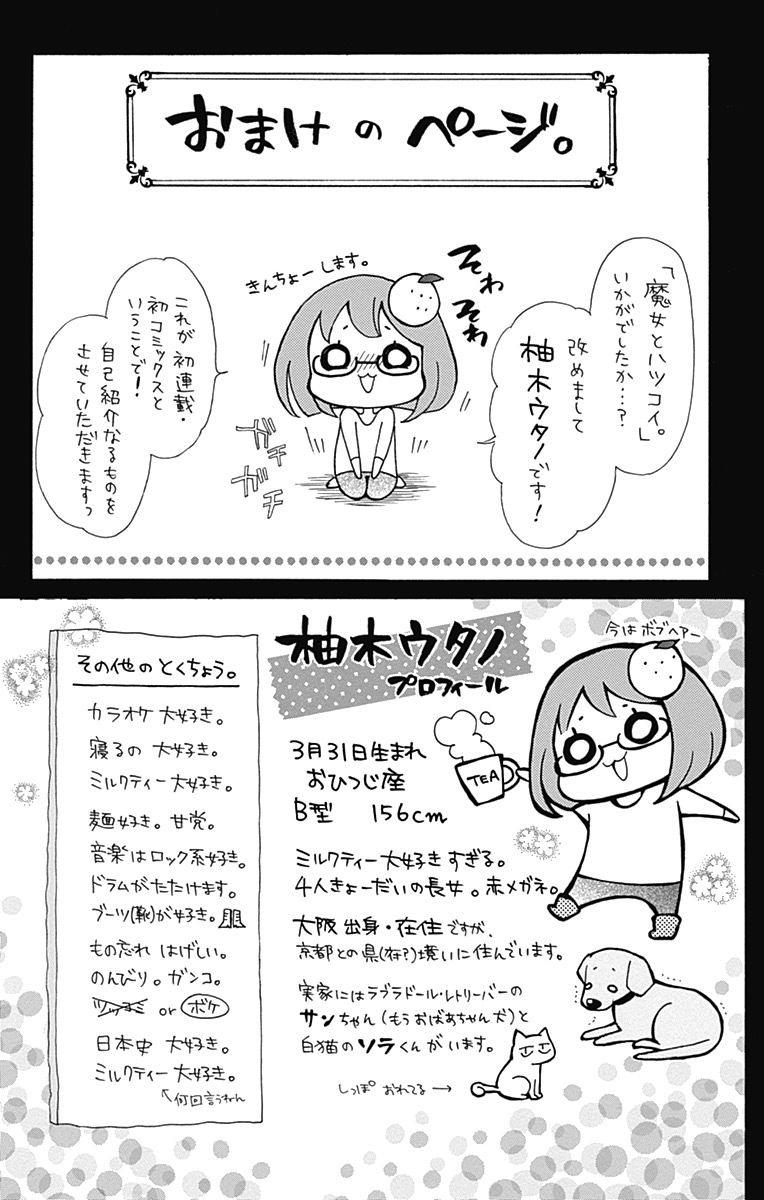 おまけのページ。
「魔女とハツコイ。」
いかがでしたか…?
改めまして
柚木ウタノです!
そわ
そわ
きんちょーします。
ガチ
ガチ
これが初連載・
初コミックスと
いうことで!
自己紹介なるものを
させていただきますっ
柚木ウタノ
プロフィール
今はボブヘアー
TEA
3月31日生まれ
おひつじ座
B型 156cm
ミルクティー大好きすぎる。
4人きょーだいの長女。赤メガネ。
大阪出身・在住ですが、
京都との県(府?)境いに住んでいます。
実家にはラブラドール・レトリーバーの
サンちゃん(もうおばあちゃん犬)と
白猫のソラくんがいます。
しっぽ おれてる→
その他のとくちょう。
カラオケ 大好き。
寝るの 大好き。
ミルクティー 大好き。
麺好き。甘党。
音楽はロック系好き。
ドラムがたたけます。
ブーツ(靴)が好き。
もの忘れ はげしい。
のんびり。ガンコ。
ツッコミ or ボケ
日本史 大好き。
ミルクティー 大好き。
↖何回言うねん